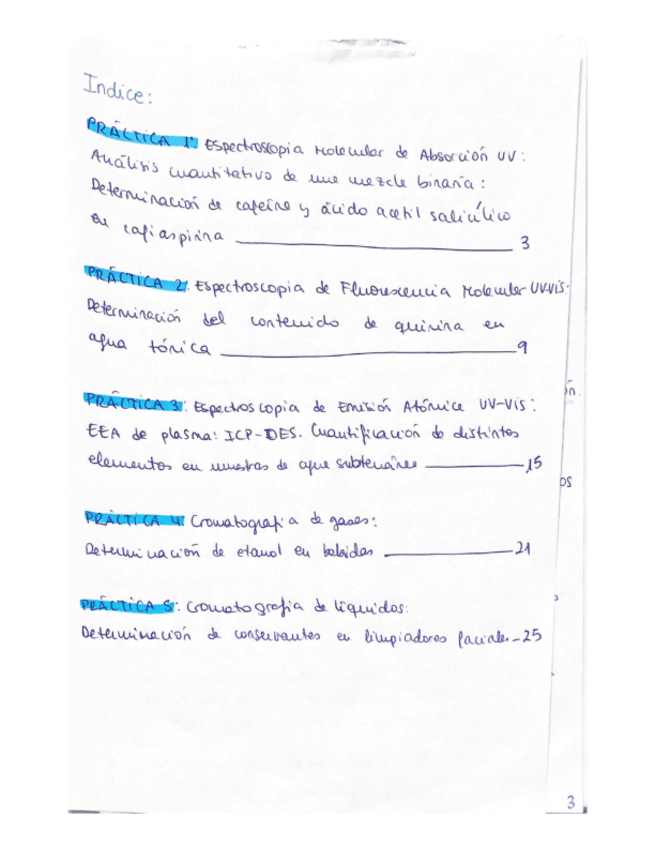 Indice:
PRÁCTICA 1: Espectroscopia Molecular de Absorción UV:
Análisis cuantitativo de una mezcla binaria:
Determinación de cafeína y ácido acetil salicílico
en cafiaspirina 3
PRÁCTICA 2: Espectroscopia de Fluorescencia Molecular UV-Vis:
Determinación del contenido de quinina en
agua tónica 9
PRÁCTICA 3: Espectroscopia de Emisión Atómica UV-Vis:
EEA de plasma: ICP-OES. Cuantificación de distintos
elementos en muestras de agua subterránea 15
PRÁCTICA 4: Cromatografía de gases:
Determinación de etanol en bebidas 21
PRÁCTICA 5: Cromatografía de líquidos:
Determinación de conservantes en limpiadores faciales 25
ón.
os
3